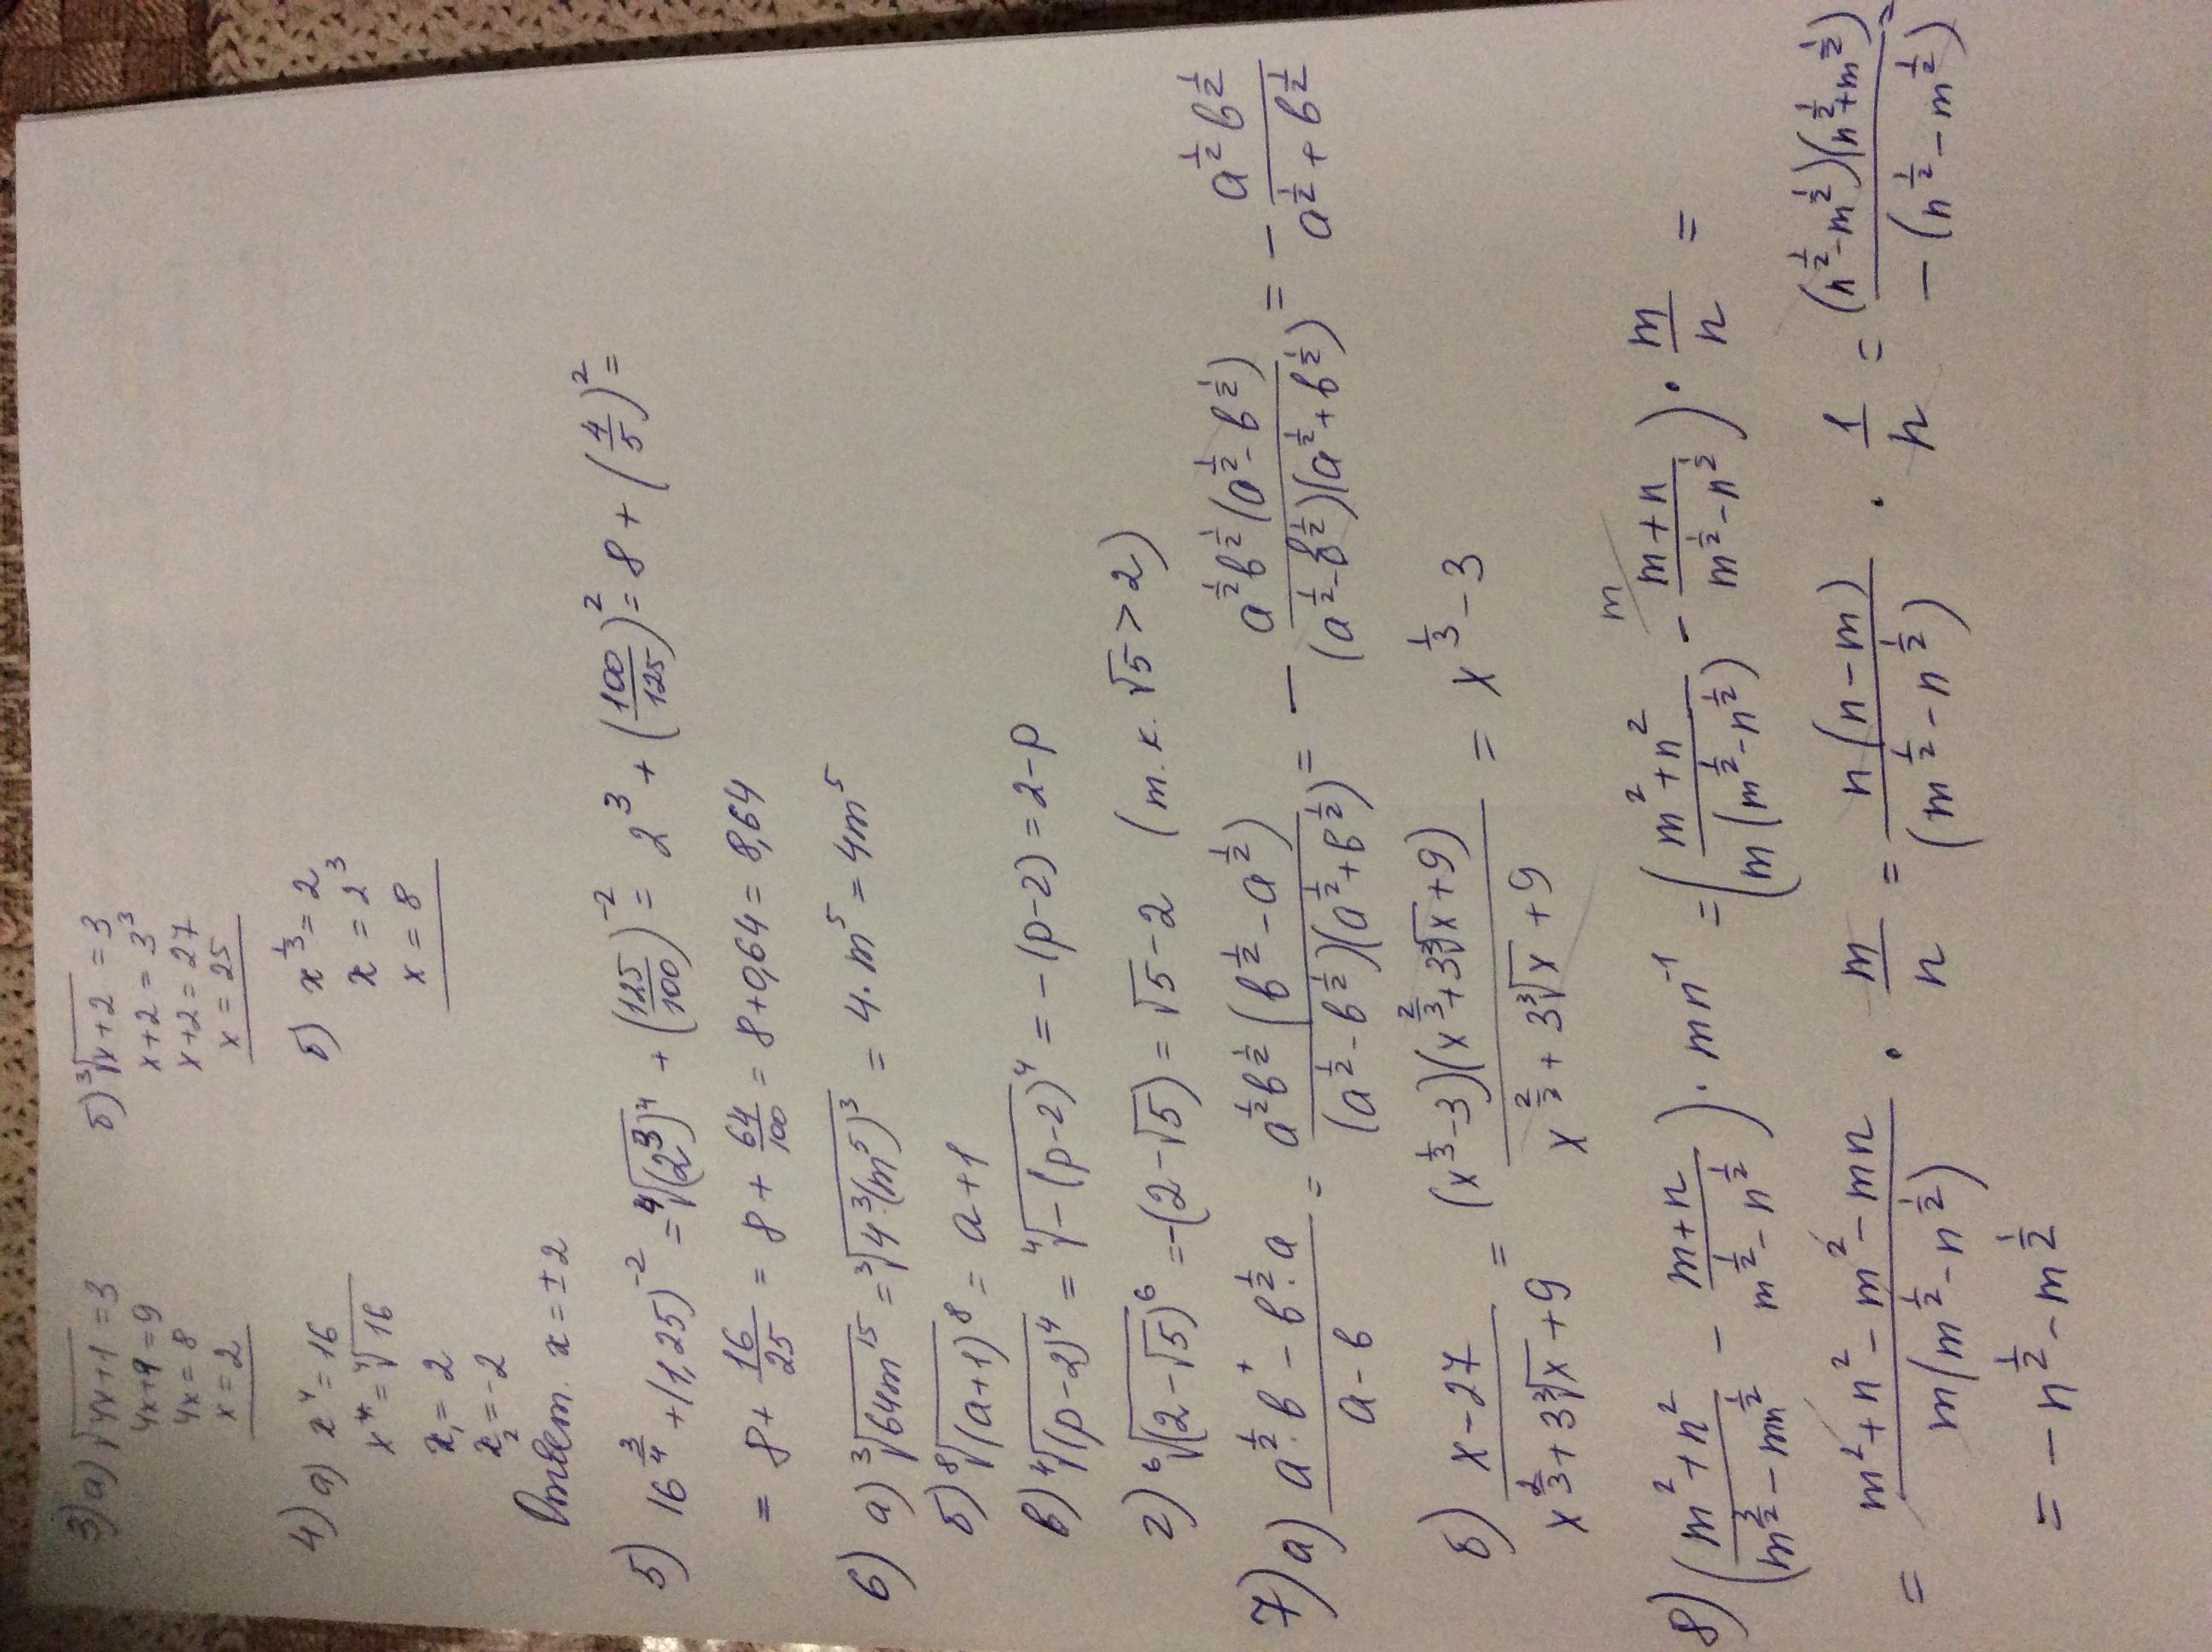 3) а) √(4x+1) = 3 б) ∛(x+2) = 3
4x+1=9 x+2 = 3³
4x=8 x+2=27
x=2 x=25
4) а) x⁴=16 б) x^(1/3) = 2
x⁴=⁴√16 x = 2³
x₁=2 x=8
x₂=-2
Ответ. x=±2
5) 16^(3/4) + (1,25)^(-2) = ⁴√((2³)⁴) + (125/100)^(-2) = 2³ + (100/125)² = 8 + (4/5)² =
= 8 + 16/25 = 8 + 64/100 = 8+0,64 = 8,64
6) а) ∛(64m¹⁵) = ∛(4³·(m⁵)³) = 4·m⁵ = 4m⁵
б) ⁸√((a+1)⁸) = a+1
в) ⁴√((p-2)⁴) = ⁴√(-(p-2)⁴) = -(p-2) = 2-p
г) ⁶√((2-√5)⁶) = -(2-√5) = √5-2 (т.к. √5>2)
7) а) (a^(1/2)·b - b^(1/2)·a)/(a-b) = a^(1/2)b^(1/2)(b^(1/2)-a^(1/2))/((a^(1/2)-b^(1/2))(a^(1/2)+b^(1/2))) = - a^(1/2)b^(1/2)(a^(1/2)-b^(1/2))/((a^(1/2)-b^(1/2))(a^(1/2)+b^(1/2))) = - a^(1/2)b^(1/2)/(a^(1/2)+b^(1/2))
б) (x-27)/(x^(2/3)+3∛x+9) = (x^(1/3)-3)(x^(2/3)+3∛x+9)/(x^(2/3)+3∛x+9) = x^(1/3)-3
8) ((m²+n²)/(m^(3/2)-mn^(1/2)) - (m+n)/(m^(1/2)-n^(1/2)))·mn⁻¹ = ((m²+n²)/(m(m^(1/2)-n^(1/2))) - (m+n)/(m^(1/2)-n^(1/2)))·m/n =
= (m²+n²-m²-mn)/(m(m^(1/2)-n^(1/2)))·m/n = n(n-m)/(m^(1/2)-n^(1/2))·1/n = (n^(1/2)-m^(1/2))(n^(1/2)+m^(1/2))/(-(n^(1/2)-m^(1/2))) =
= -n^(1/2)-m^(1/2)